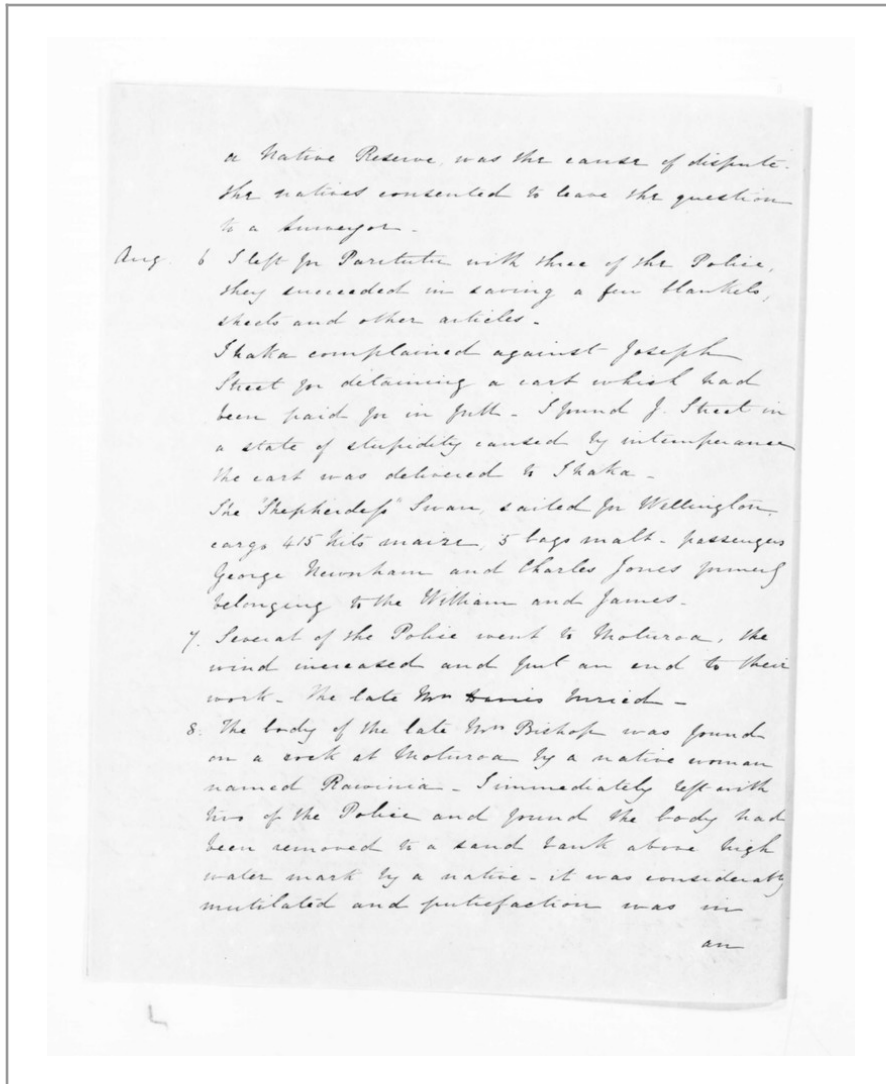 a Native Reserve, was the cause of dispute.
the natives consented to leave the question
to a Surveyor -
Aug 6 I left for Paritutu with three of the Police,
they succeeded in saving a few blankets,
sheets and other articles -
Ihaka complained against Joseph
Street for detaining a cart which had
been paid for in full - I found J. Street in
a state of stupidity caused by intemperance
the cart was delivered to Ihaka -
The "Shepherdess" Swan, sailed for Wellington,
cargo 415 kits maize, 5 bags malt - passengers
George Newnham and Charles Jones formerly
belonging to the William and James -
7. Several of the Police went to Moturoa, the
wind increased and put an end to their
work - The late Mrs Davies buried -
8. The body of the late Mrs Bishop was found
on a rock at Moturoa by a native woman
named Rawinia - I immediately left with
two of the Police and found the body had
been removed to a sand bank above high
water mark by a native - it was considerably
mutilated and putrefaction was in
an